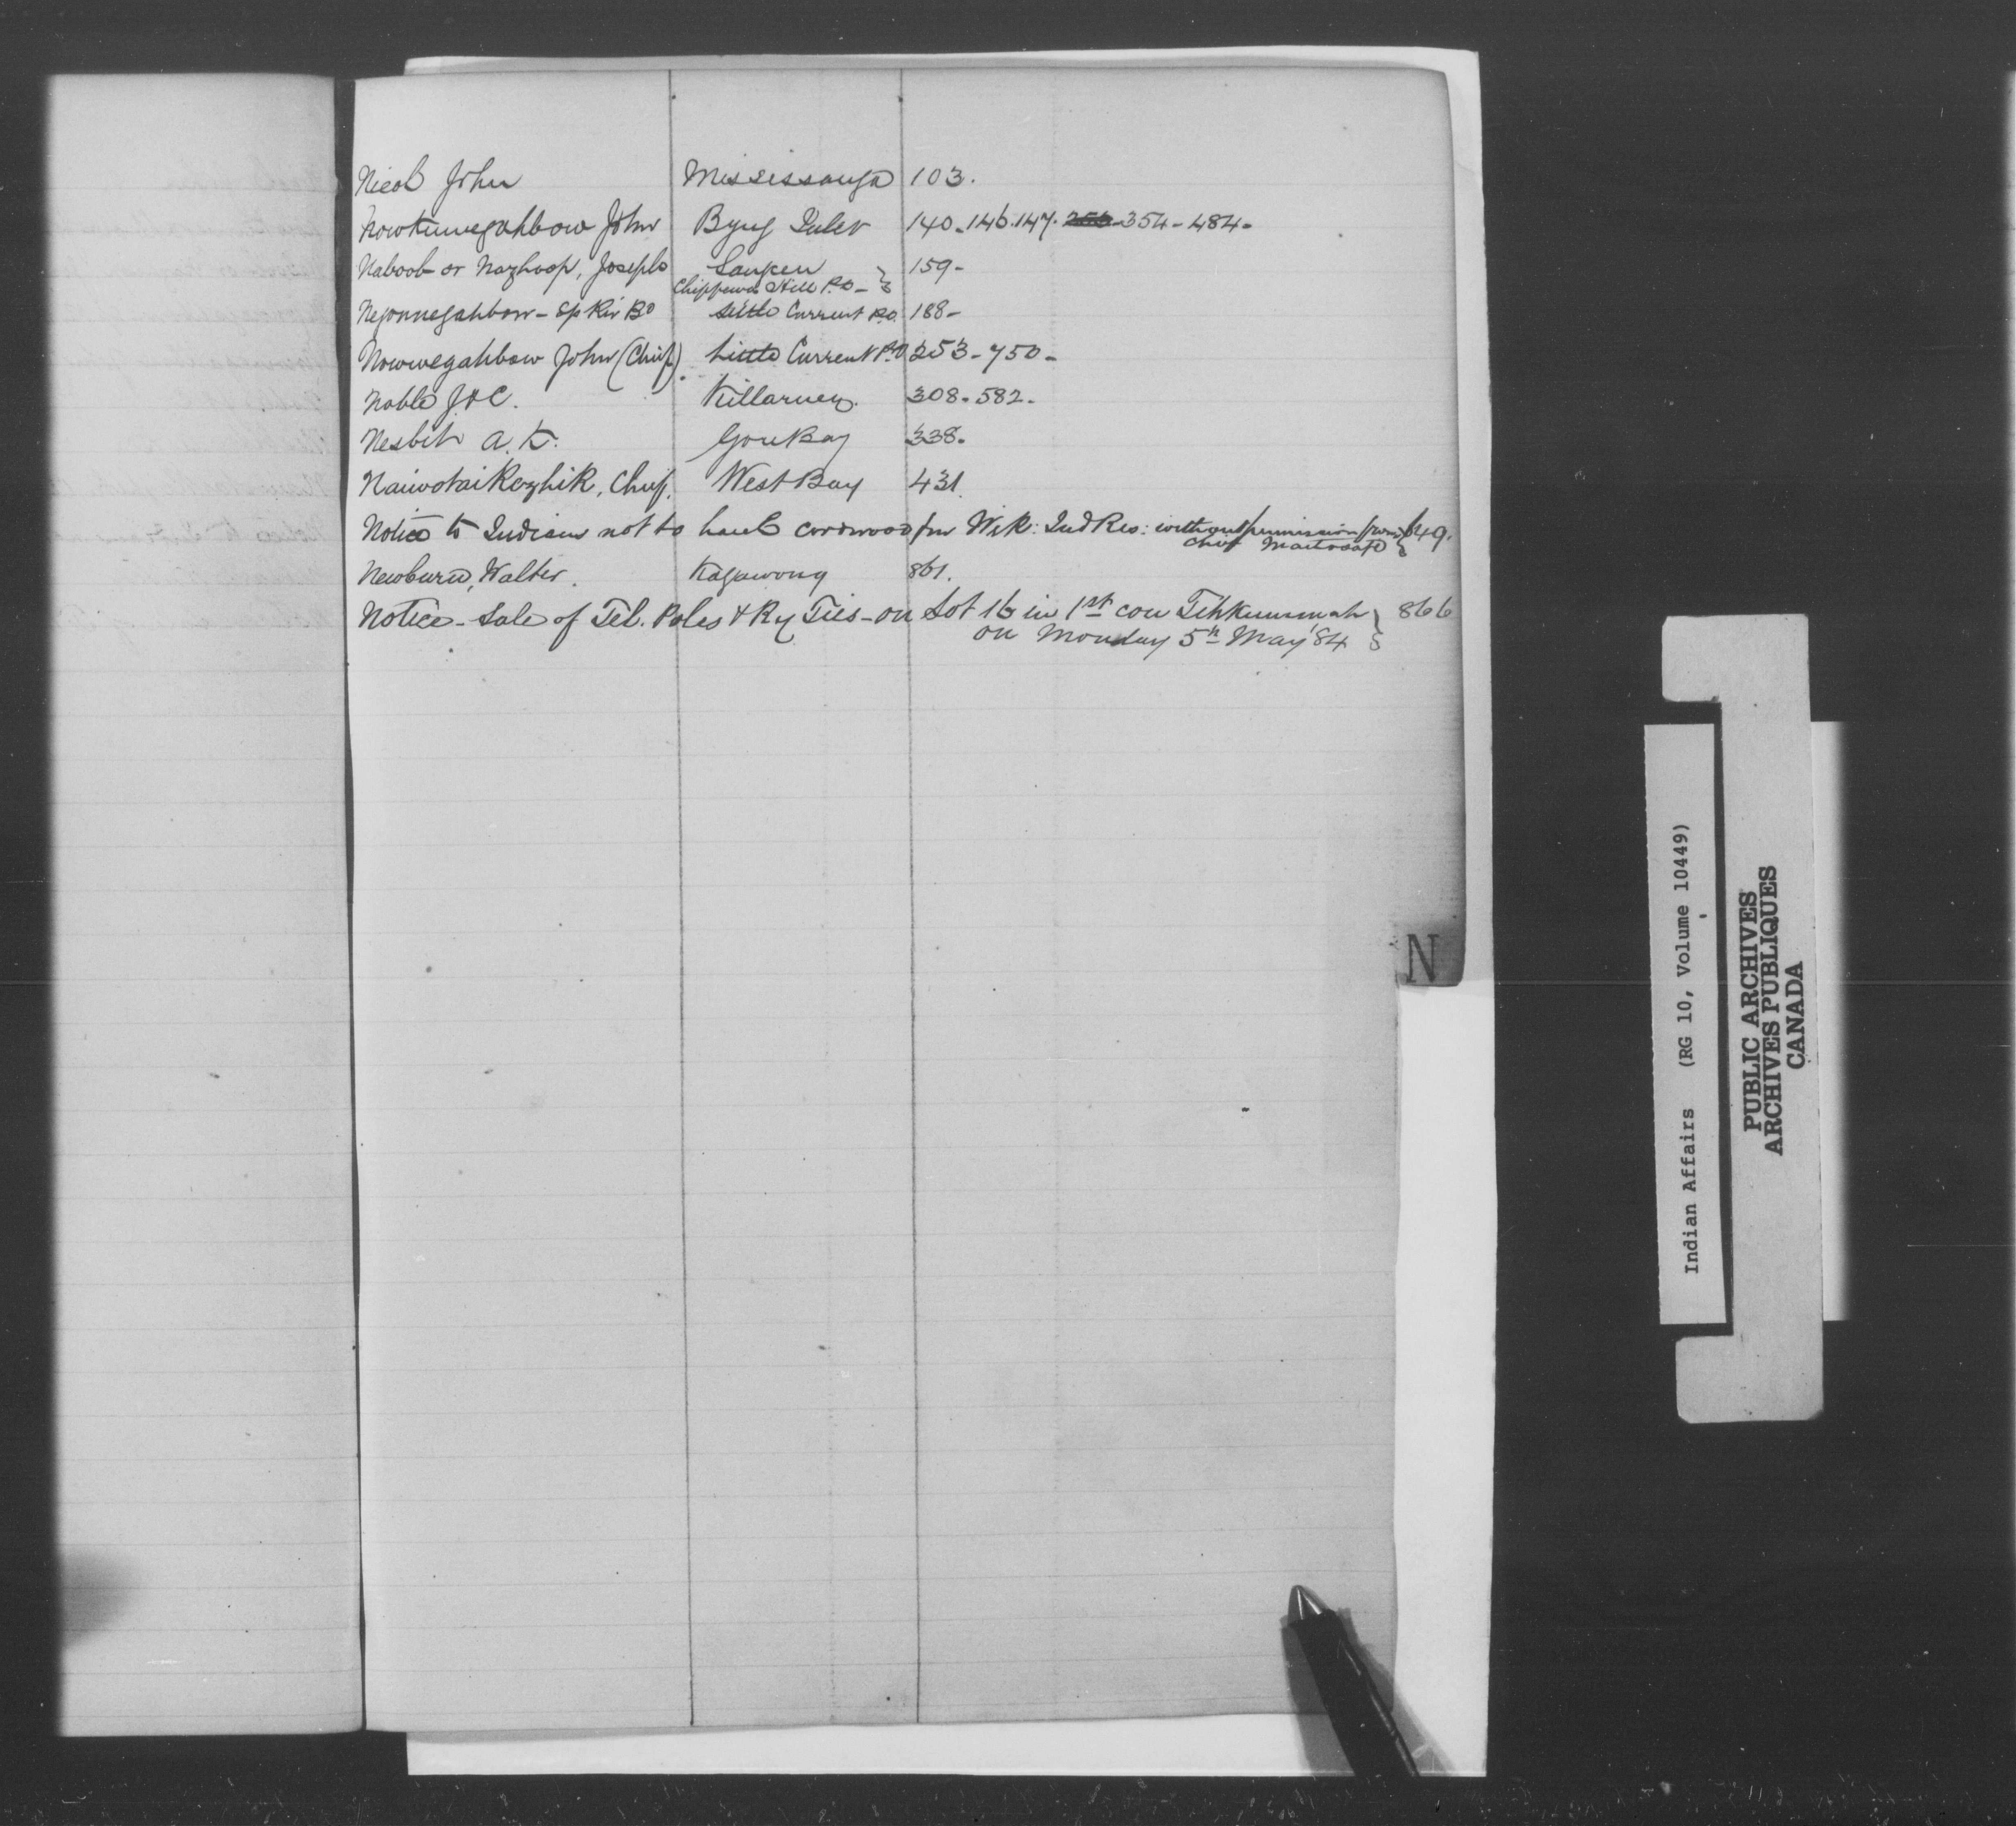 Nicol John Mississauga 103.
Nowkunegahbow John Byng Inlet 140. 146. 147. 256 354 - 484 -
Naboob or Nazhoop, Joseph Saugeen } 159 -
Chippewa Hill P.O -
Negonnegahbow - Sp Riv Bd Little Current P.O. 188 -
Nowwegahbow John (Chief). Little Current P.O 253 - 750 -
Noble J & C. Killarney. 308. 582.
Nesbit A. K. Gore Bay 338.
Naiwotaikezhik, Chief. West Bay 431.
Notice to Indians not to haul cordwood fm Wik: Ind Res: without permission from } 649.
Chief
Newburn, Walter. Kagawong 861.
Notice - Sale of Tel. Poles & Ry Ties - on Lot 16 in 1st con Tehkummah } 866
on Monday 5th May '84
N
Indian Affairs (RG 10, Volume 10449)
PUBLIC ARCHIVES
ARCHIVES PUBLIQUES
CANADA